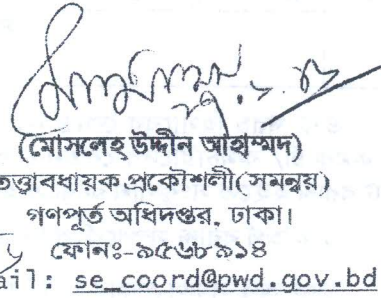 (মোসলেহ উদ্দীন আহাম্মদ)
তত্ত্বাবধায়ক প্রকৌশলী(সমন্বয়)
গণপূর্ত অধিদপ্তর, ঢাকা।
ফোনঃ-৯৫৬৮৯১৪
ail: se_coord@pwd.gov.bd